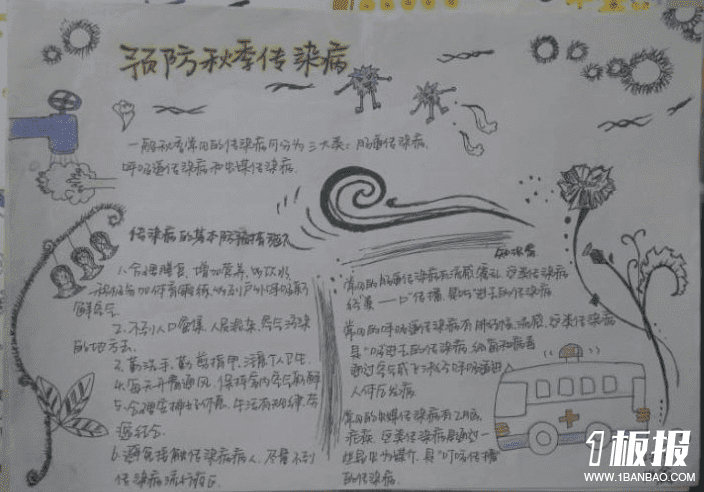 预防秋季传染病
一般秋季常见的传染病可分为三大类：肠道传染病，
呼吸道传染病和虫媒传染病。
传染病的基本防御措施
1、合理膳食，增加营养，多饮水
积极参加体育锻炼，多到户外呼吸新
鲜空气。
2、不到人口密集，人员 空气污染
的地方去。
3、勤洗手，勤剪指甲，注意个人卫生。
4、每天开窗通风，保持室内空气新鲜
5、合理安排好作息，生活有规律，劳
逸结合。
6、避免接触传染病病人，尽量不到
传染病流行疫区。
常见的肠道传染病有 这类传染病
传播，是吃进去的传染病
常见的呼吸道传染病有 流感，这类传染病
具"吸进去的传染病，细菌和病毒
通过空气或飞沫 呼吸道进
人体后发病
常见的虫媒传染病有乙脑，
疟疾，这类传染病是通过一
些昆虫为媒介，具"叮咬传播
的传染病。
1板报
WWW.1BANBAO.COM